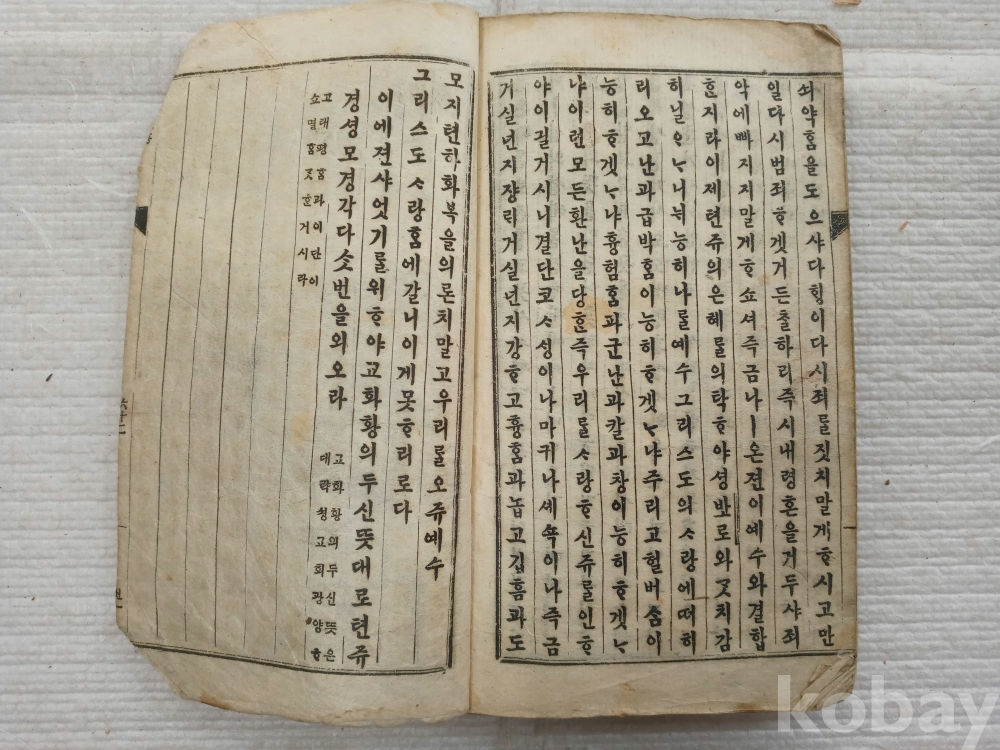 쇠약홈을도으샤다힝이다시죄를짓치말게ᄒᆞ시고만
일다시범죄ᄒᆞ겟거든츌하리즉시내령혼을거두샤죄
악에빠지지말게ᄒᆞ쇼셔즉금나ㅣ온젼이예수와결합
ᄒᆞᆫ지라이제텬쥬의은혜를의탁ᄒᆞ야셩바로와ᄀᆞᆺ치감
히닐ᄋᆞᄂᆞ니뉘능히나를예수그리스도의ᄉᆞ랑에떠히
리오고난과급박홈이능히ᄒᆞ겟ᄂᆞ냐주리고헐버슴이
능히ᄒᆞ겟ᄂᆞ냐흉험홈과군난과칼과창이능히ᄒᆞ겟ᄂᆞ
냐이런모든환난을당ᄒᆞᆫ즉우리를ᄉᆞ랑ᄒᆞ신쥬를인ᄒᆞ
야이긜거시니결단코ᄉᆞ싱이나마귀나셰쇽이나즉금
거실넌지쟝릭거실넌지강ᄒᆞ고흉홈과놉고깁흠과도
모지텬하화복을의론치말고우리를오쥬예수
그리스도ᄉᆞ랑홈에갈니이게못ᄒᆞ리로다
이에젼샤엇기를위ᄒᆞ야교화황의두신뜻대로텬쥬
경셩모경각다ᄉᆞᆺ번을외오라
교화황의두신뜻은
대략셩교회광양ᄒᆞ
고태평홈과이단이
쇼멸홈ᄀᆞᆺᄒᆞᆫ거시라
kobay